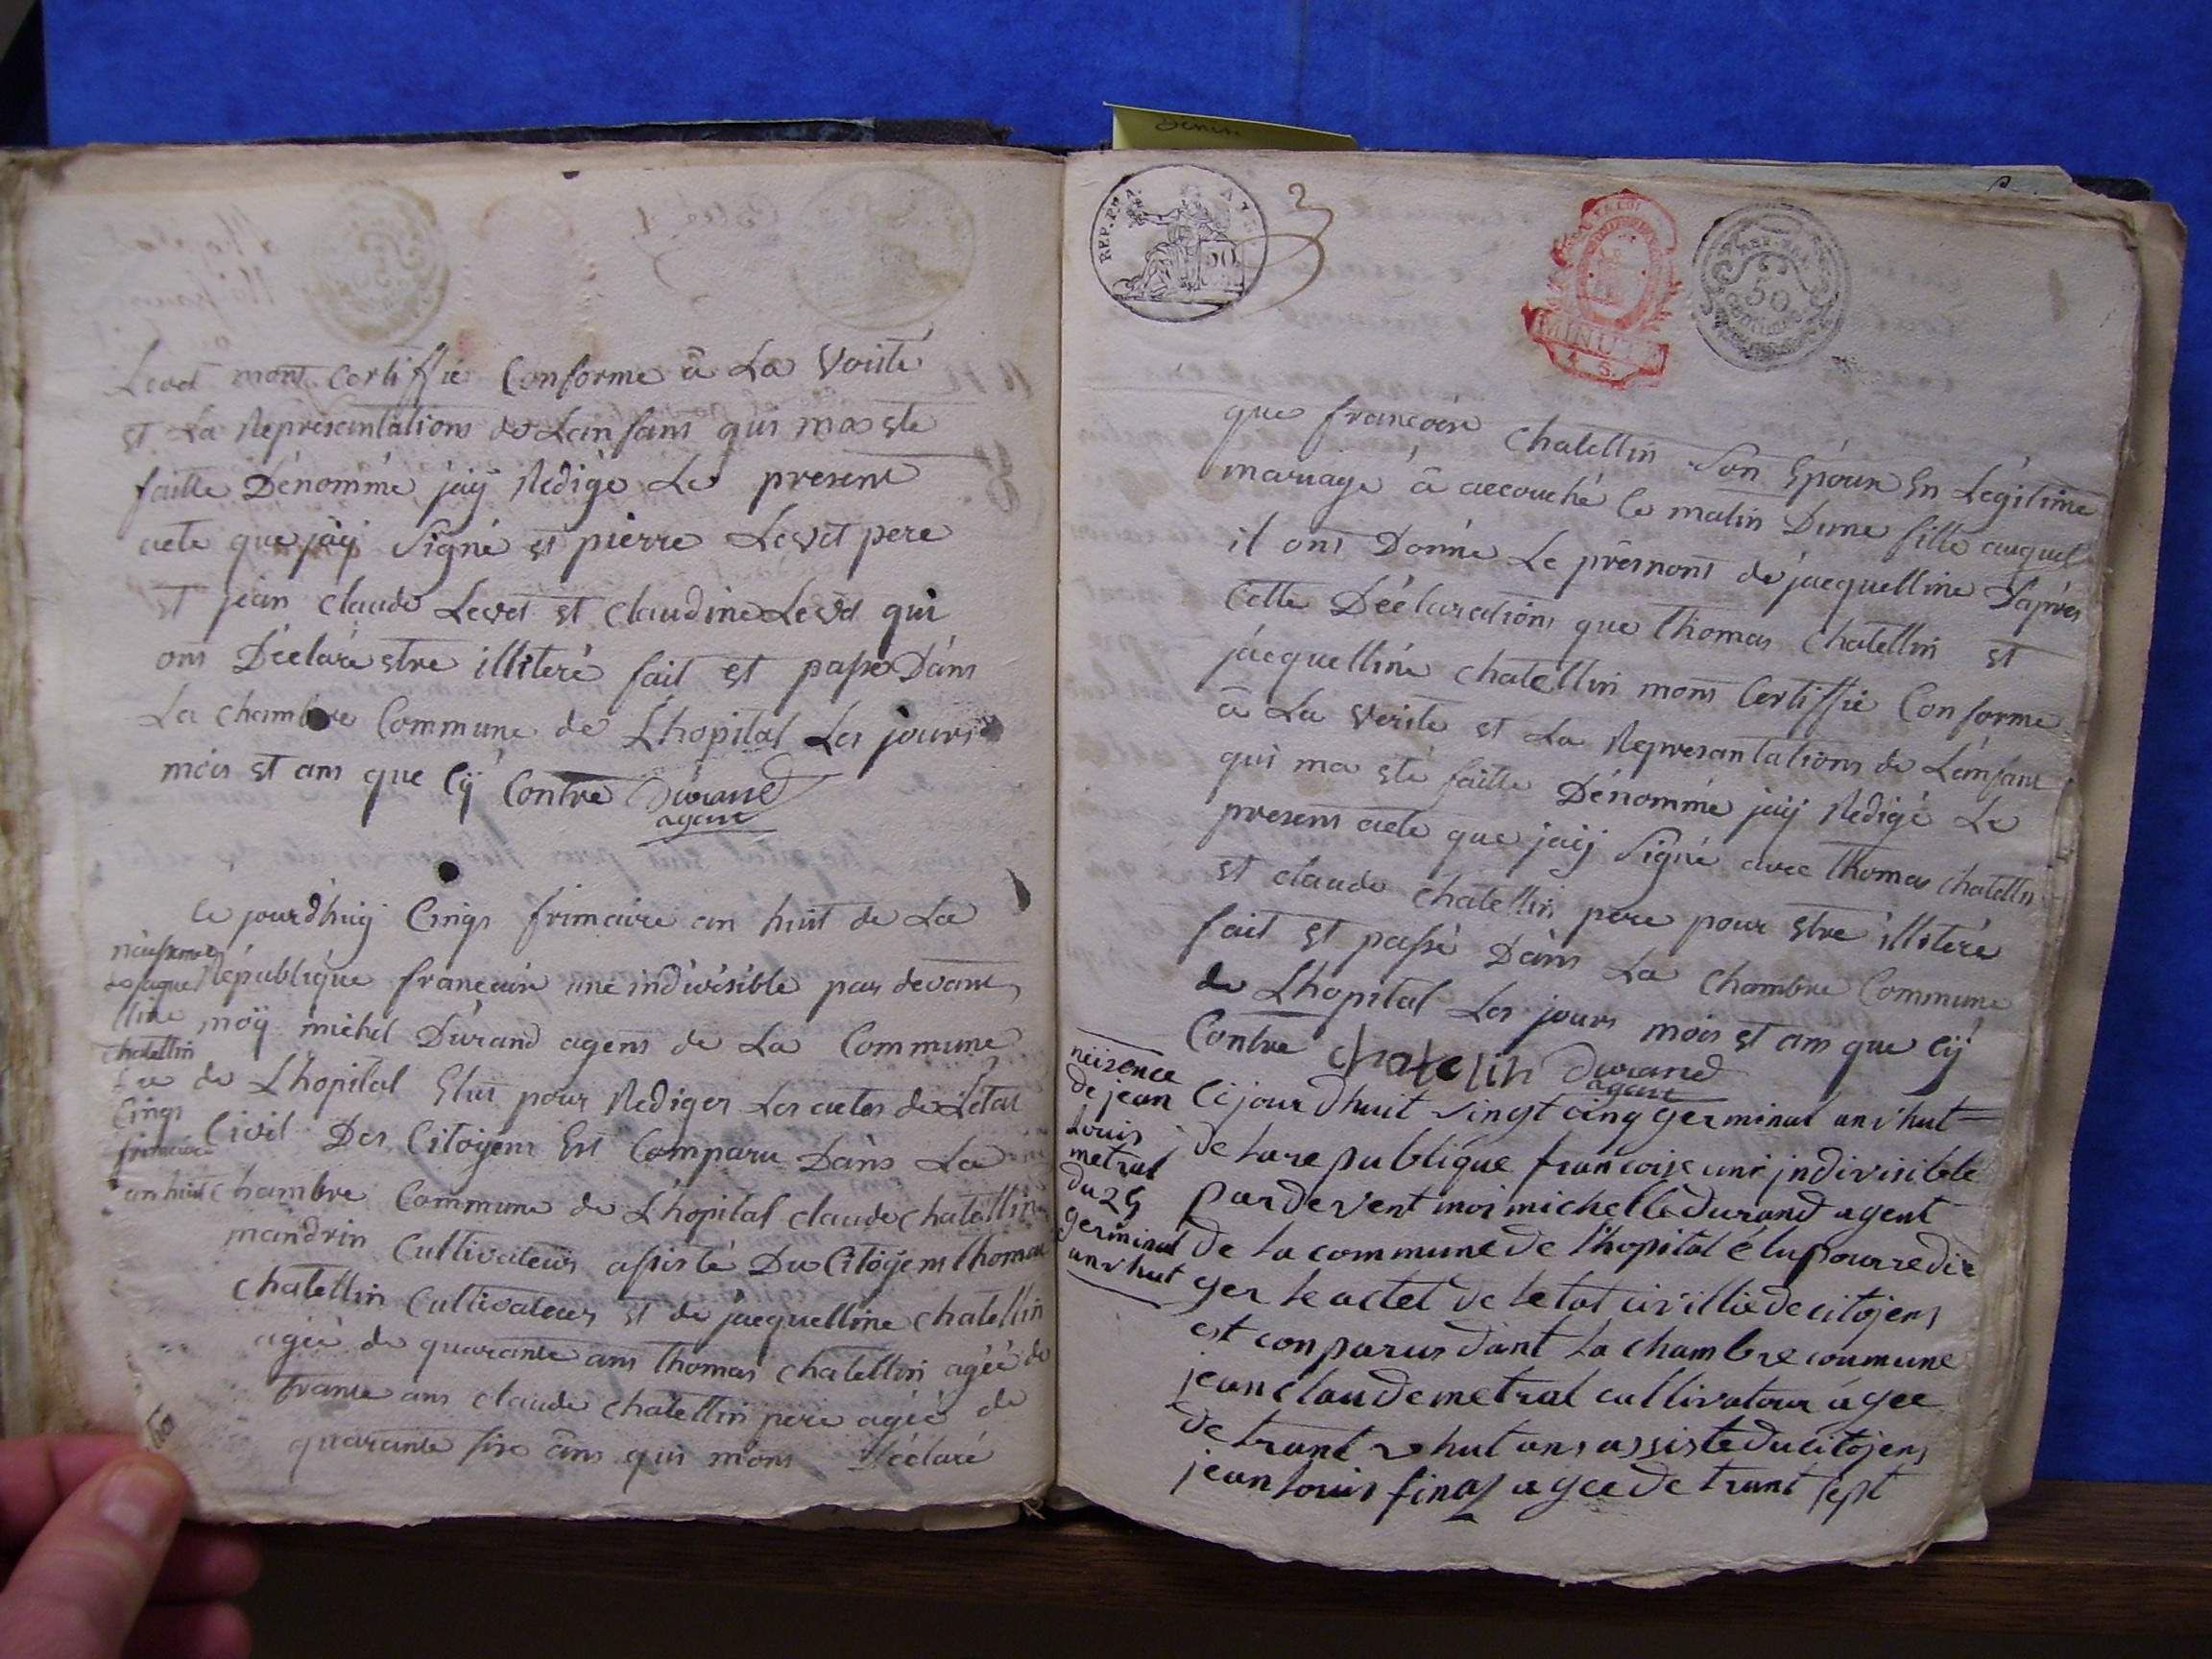 Levet mont Certiffié Conforme â La Vérité
et La Représantations de Lanfans qui ma ete
faitte Dénommé jaÿ Redigé Le present
acte que jaÿ Signé et pierre Levet pere
et jean claude Levet et claudine Levet qui
ons Déclaré etre illiteré fait et passe Dans
La chambre Commune de Lhopital Les jours
mois et ans que Cÿ Contre Durand
agent
Ce jourdhuiÿ Cinqs frimaire an huit de La
République francaise une indivisible par devant
moÿ michel Durand agens de La Commune
de Lhopital Elus pour Rediger Les actes de Létat
Civil Des Citoyens Est Comparu Dans La
chambre Commune de Lhopital claude chatellin
mandrin Cultivateurs assisté Du Citoyens thomas
chatellin Cultivateurs et de jacquelline chatellin
agéé de quarante ans thomas chatellin agéé de
trante ans claude chatellin pere agéé de
quarante six ans qui mons Déclaré
naissance
de jaque
lline
chatellin
du
Cinqs
frimaire
an huit
3
REP. FRA.
50
MINUTE
REP. FRA.
50
centimes
que francoise chatellin Son Epouse En Légitime
mariage â accouché Ce matin Dune fille auquel
il ons Donné Le prénons de jacquelline Dapres
Cette Déclarations que thomas chatellin et
jacquelline chatellin mons Certiffié Conforme
â La Verite et La Represantations de Lanfans
qui ma eté faitte Dénommé jaÿ Redigé Le
presens acte que jaÿ Signé avec thomas chatellin
et claude chatellin pere pour etre illiteré
fait et passé Dans La Chambre Commune
de Lhopital Les jours mois et ans que cÿ
Contre chatelin Durand
agent
neisence
de jean
Louis
metral
du 25
germinal
anvhut
Cejourdhuit vingt cinq germinal anvhut
de La republique francoise une jndivisible
pardevent moi michelle durand agent
de La commune de l'hopital élu pour redi
ger le actet de letat civillie de citojens
est conparus dant La chambre coumune
jean claude metral cultivatour agee
de trant vhut ans assiste du citojens
jean Louis finaz agee de trant sept